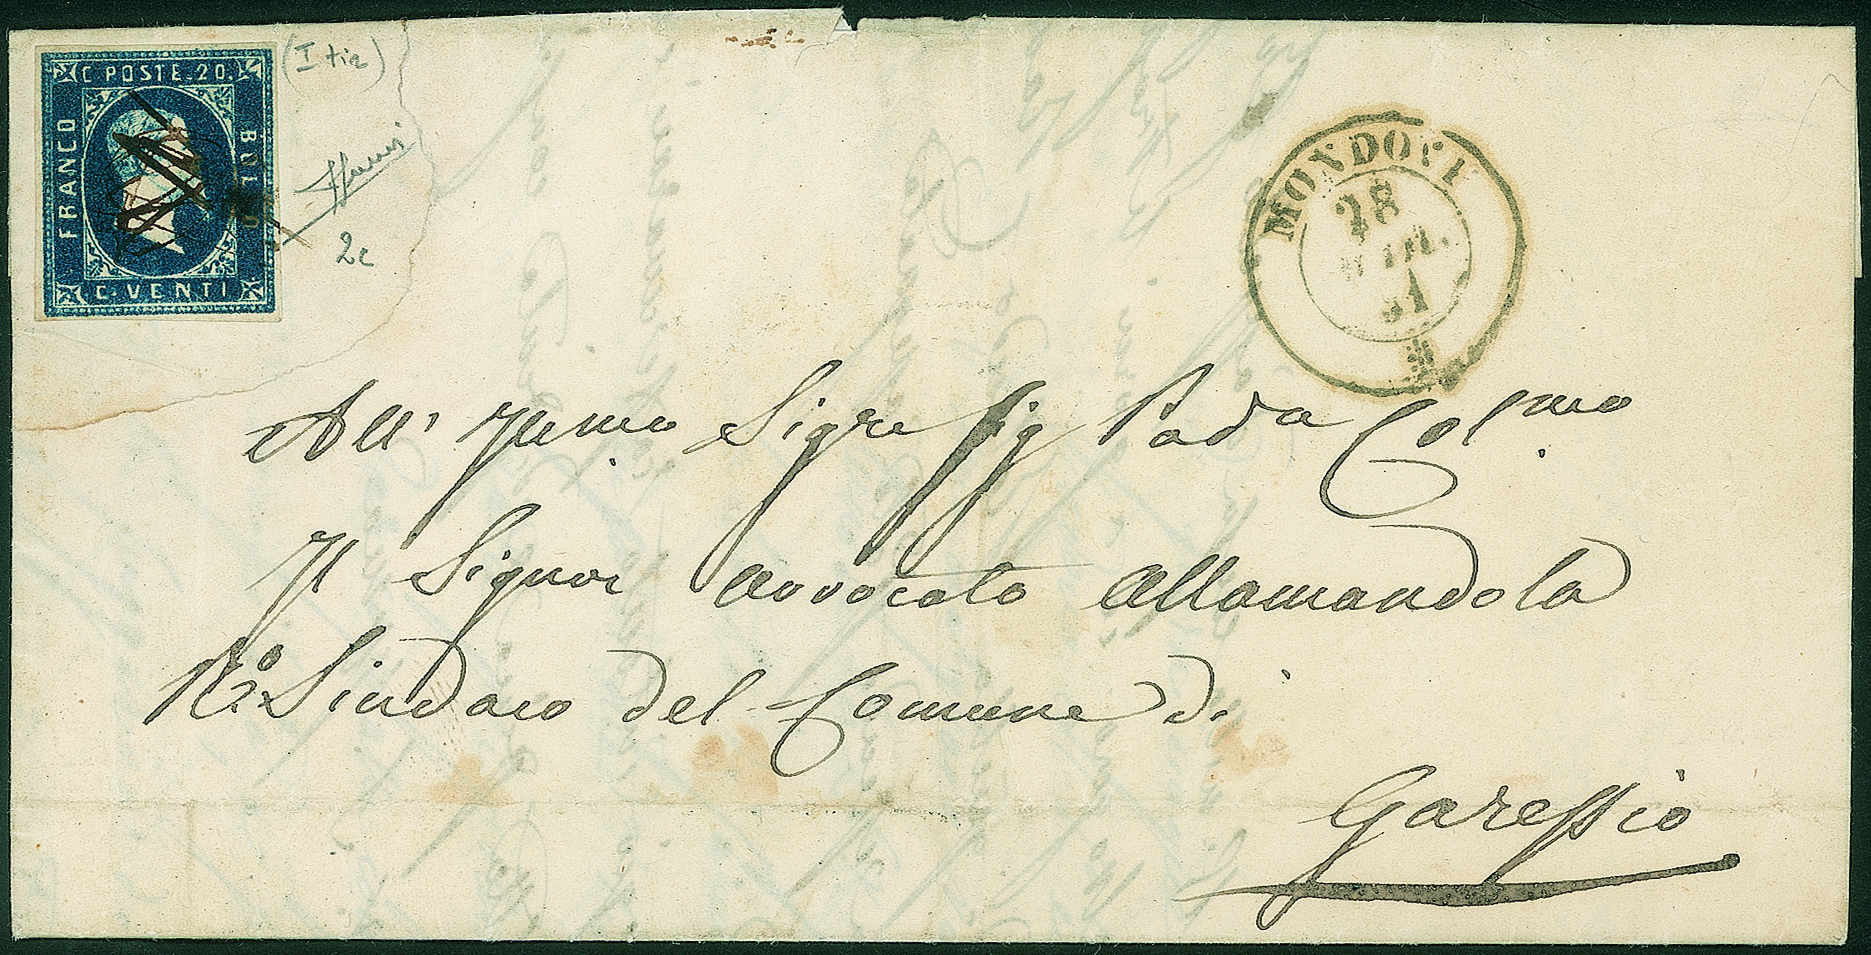 C. POSTE. 20.
FRANCO
BOLLO
C. VENTI
(I tir)
2c
MONDOVI
28
LUL.
51
All' Illmo Sigre Sig Pad a Colmo
Il Signor Avvocato Allamandola
R° Sindaco del Comune di
Garessio